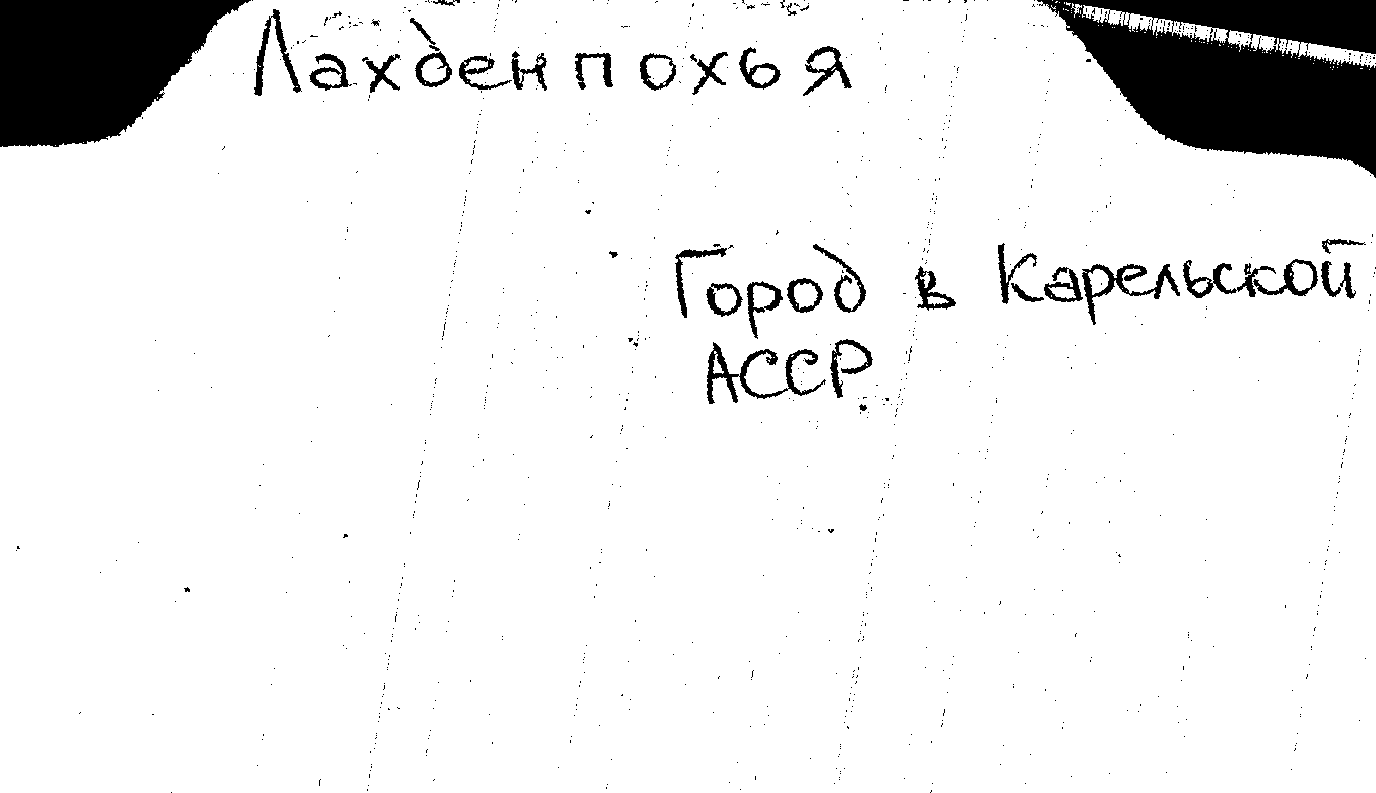 Лахденпохья
Город в Карельской
АССР.